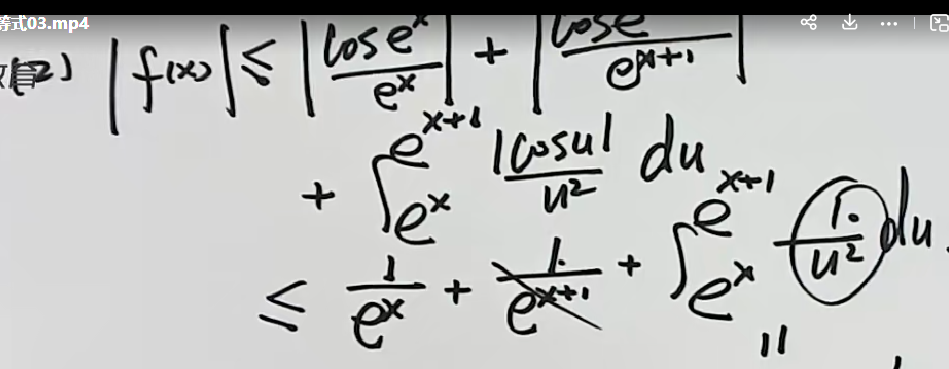 等式03.mp4
(2) |f(x)| ≤ |cos e^x / e^x| + |cos e / e^{x+1}|
+ ∫_{e^x}^{e^{x+1}} |cos u| / u² du
≤ 1/e^x + 1/e^{x+1} + ∫_{e^x}^{e^{x+1}} 1/u² du